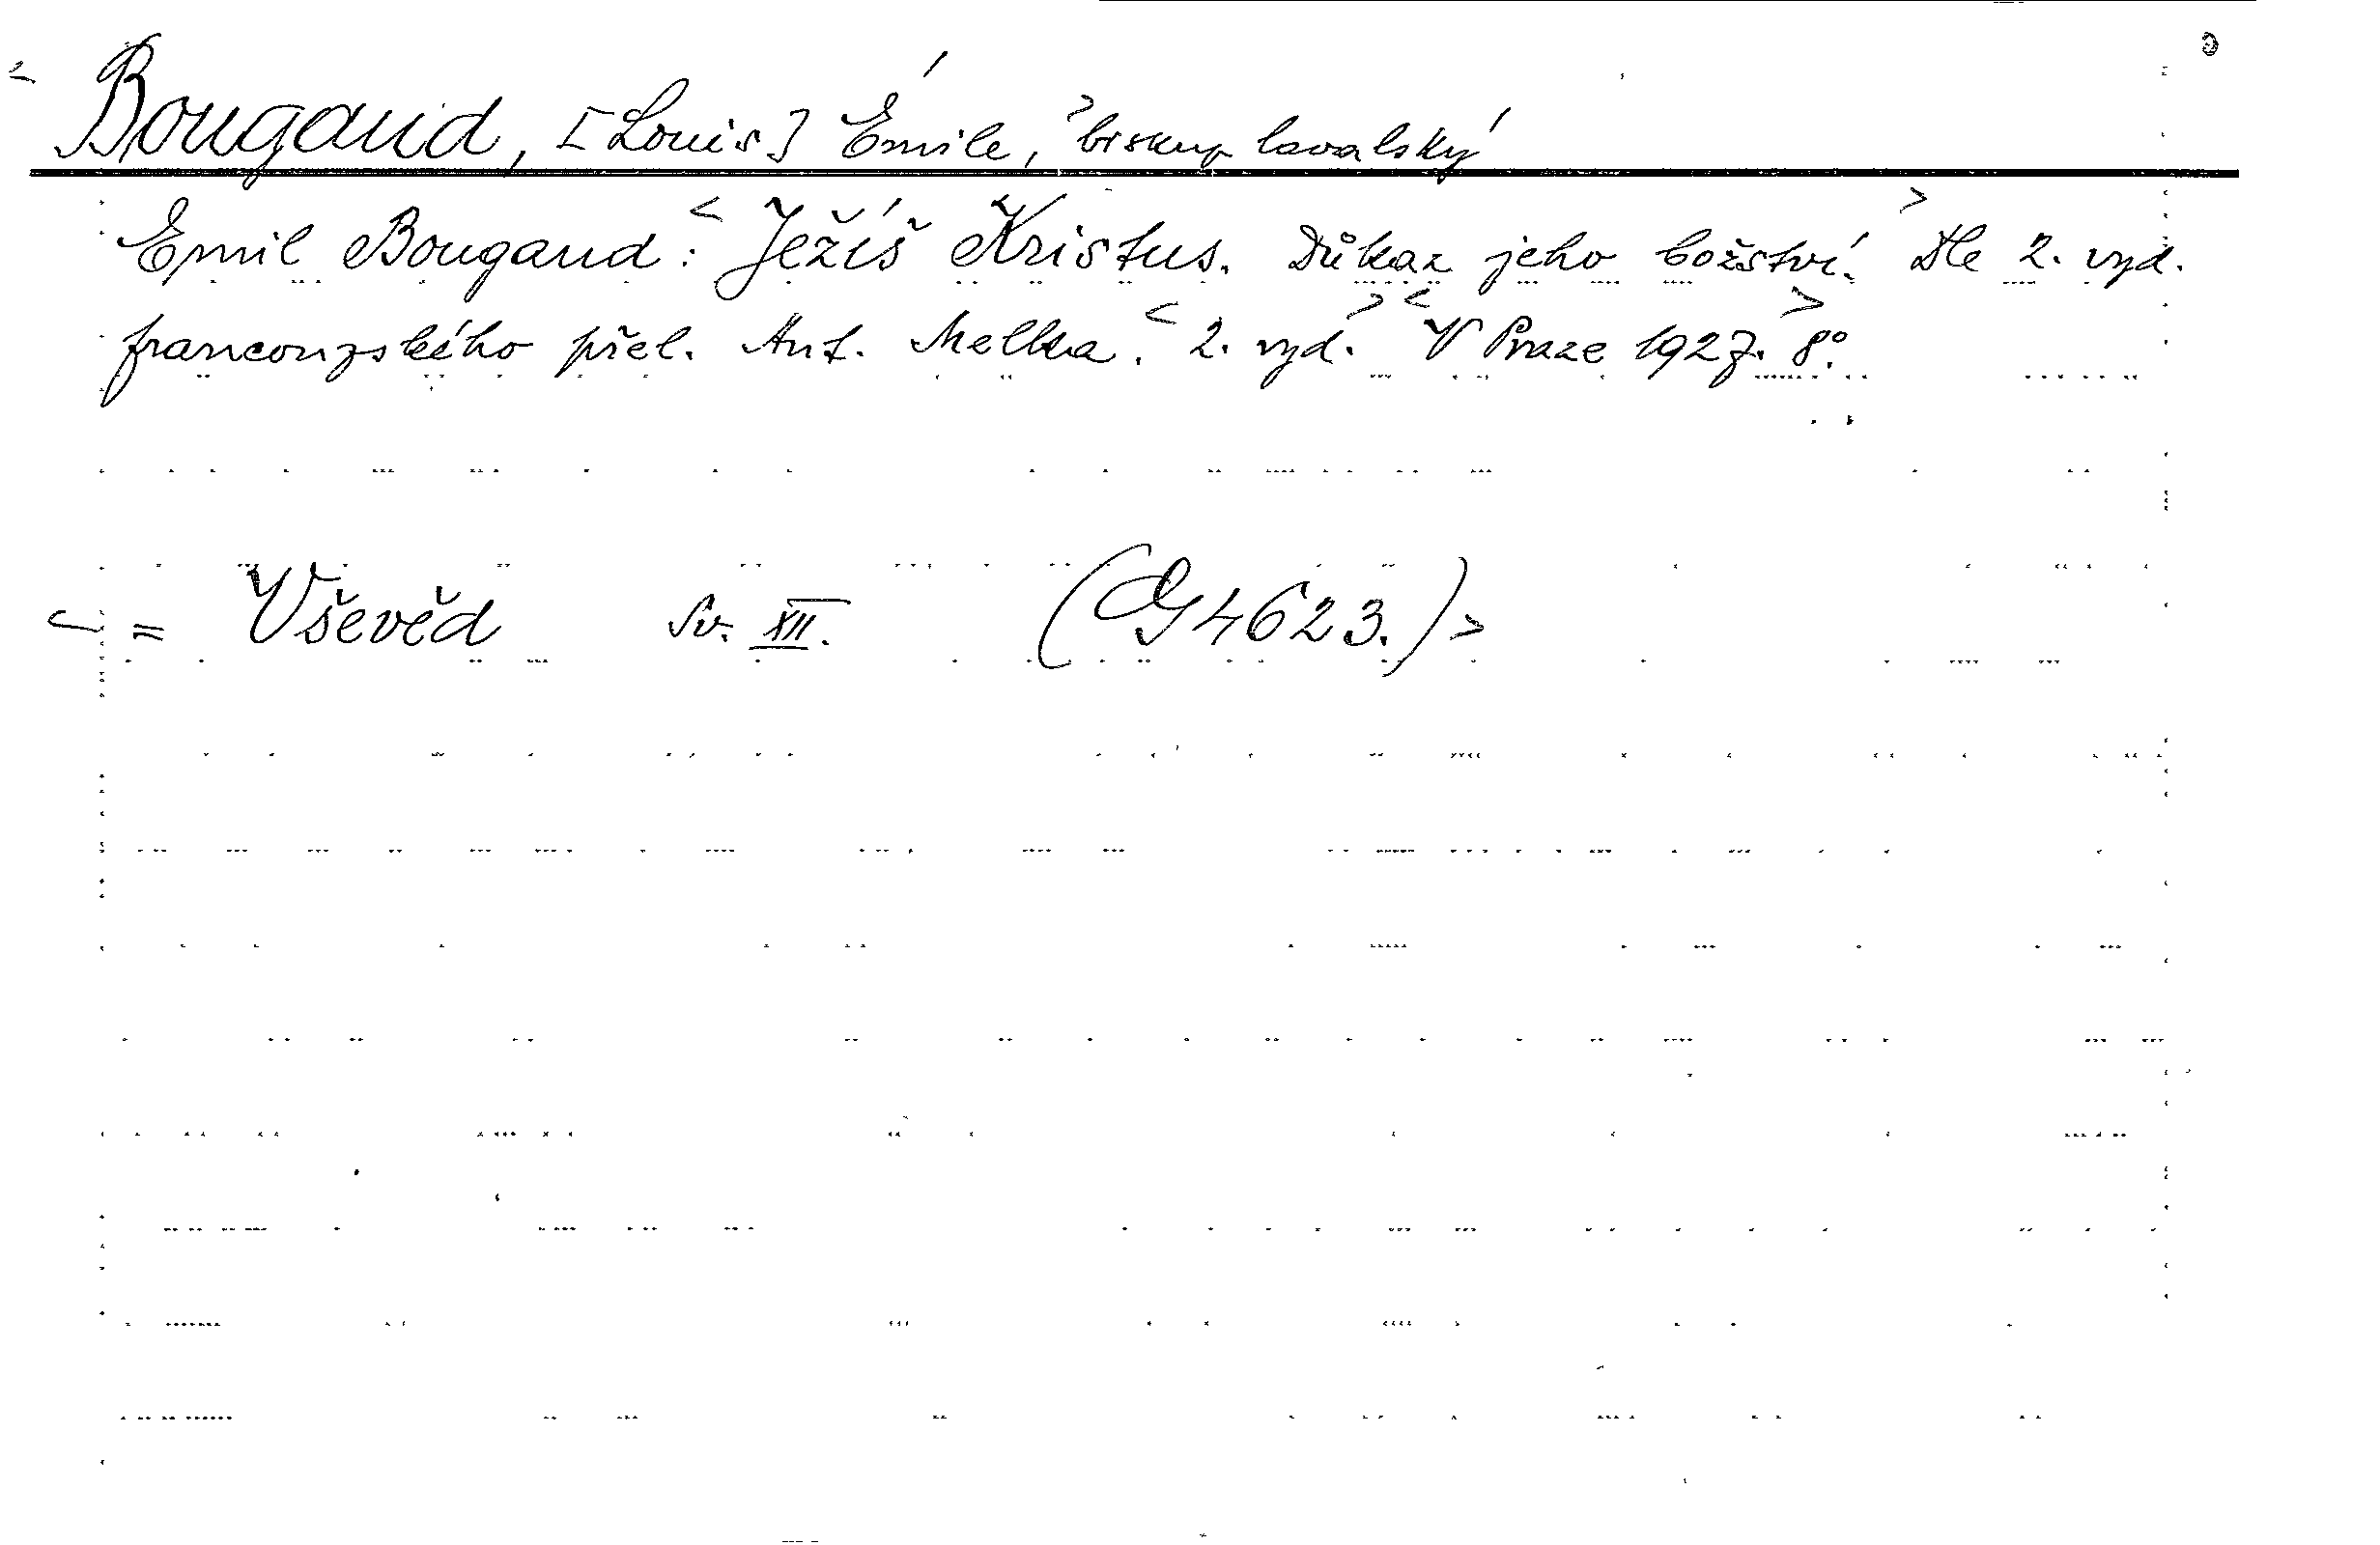 <Bougaud, [Louis] Émile,> biskup lavalský
Emil Bougaud: <Ježíš Kristus. Důkaz jeho božství.> Dle 2. vyd.
francouzského přel. Ant. Melka. <2. vyd.> <V Praze 1927.> 8°.
<= Vševěd Sv. XII. (G 4623.)>